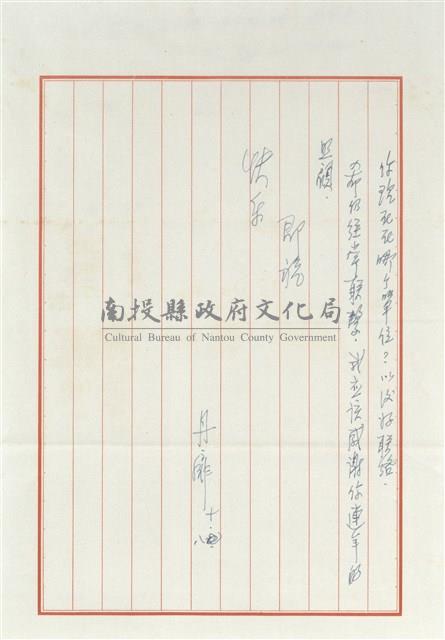 你現在在哪个單位？以後好聯絡．
希你經常聯繫．我应该感謝你連年的
照顧．
即祝
快乐
丹扉 十.八.
南投縣政府文化局
Cultural Bureau of Nantou County Government